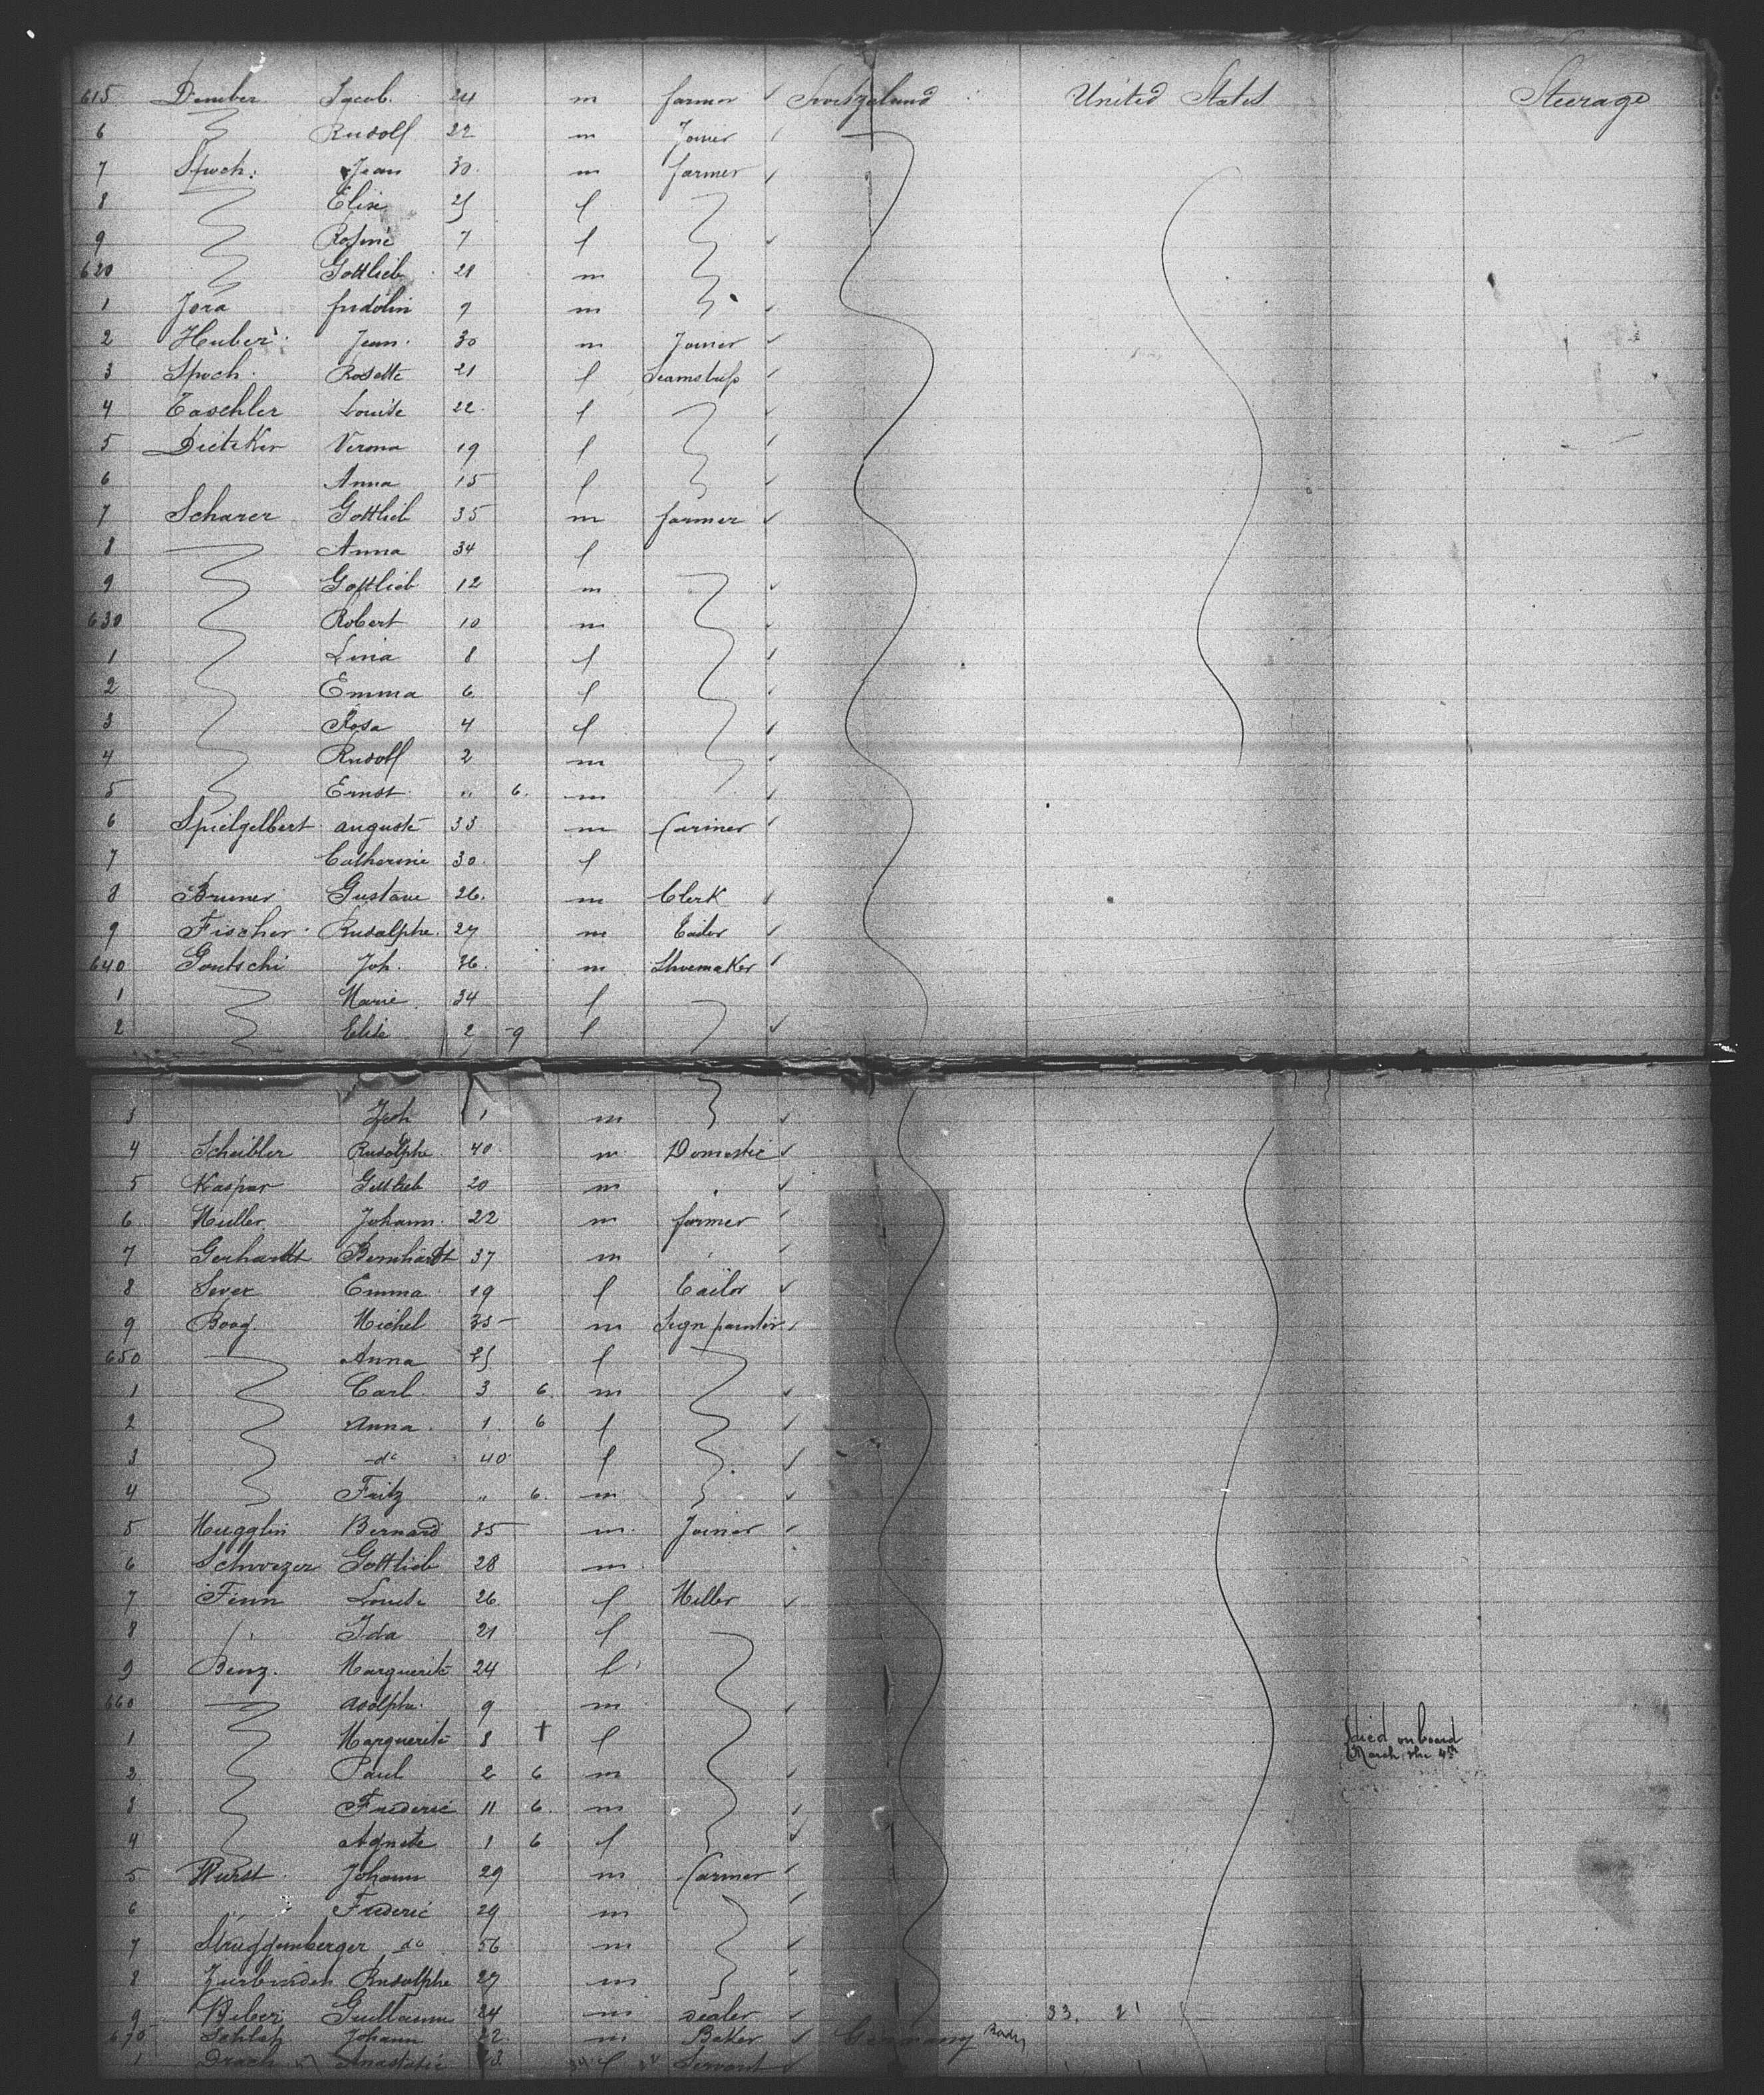 615 Dember Jacob. 24 m farmer Switzerland United States Steerage
6 Rudolf 22 m Joiner
7 Spoch. Jean 30. m farmer
8 Elise 25 f
9 Rosine 7 f
620 Gottlieb 21 m
1 Jora fridolin 9 m
2 Huber Jean. 30 m Joiner
3 Spoch. Rosette 21 f Seamstress
4 Taschler Louise 22. f
5 Dietiker Verona 19 f
6 Anna 15 f
7 Scharer Gottlieb 35 m farmer
8 Anna 34 f
9 Gottlieb 12 m
630 Robert 10 m
1 Lina 8 f
2 Emma 6 f
3 Rosa 4 f
4 Rudolf 2 m
5 Ernst " 6. m
6 Spielgelbert auguste 33 m farmer
7 Catherine 30. f
8 Bruner Gustave 26. m Clerk
9 Fischer Rudolphe. 27 m Tailor
640 Gontschi Joh. 36. m Shoemaker
1 Marie 34 f
2 Elise 2 9 f
3 Joh 1 m
4 Scheibler Rudolphe 40. m Domestic
5 Kaspar Gottlieb 20 m
6 Muller Johann. 22 m farmer
7 Gerhardt Bernhardt 37 m
8 Sever Emma 19 f Tailor
9 Boog. Michel 35 m Sign painter
650 Anna 25 f
1 Carl. 3 6. m
2 Anna. 1 6 f
3 do 40 f
4 Fritz " 6. m
5 Mugglin Bernard 35 m. Joiner
6 Schwizer Gottlieb 28 m
7 Finn Louise 26 f Miller
8 " Ida 21 f
9 Benz. Marguerite 24 f
660 adolphe. 9 m
1 Marguerite 8 † f died on board March the 4th
2 Paul 2 6 m
3 Frederic 11 6. m
4 Agnete 1 6 f
5 Wurst. Johann 29 m farmer
6 Frederic 29 m
7 Struggenberger do 56 m
8 Zurbinden Rudolphe 27 m
9 Biber Guillaume 24 m dealer 33. 21
670 Schlap Johann 22. m Baker Germany
1 Drach Anastasie 23. f Servant